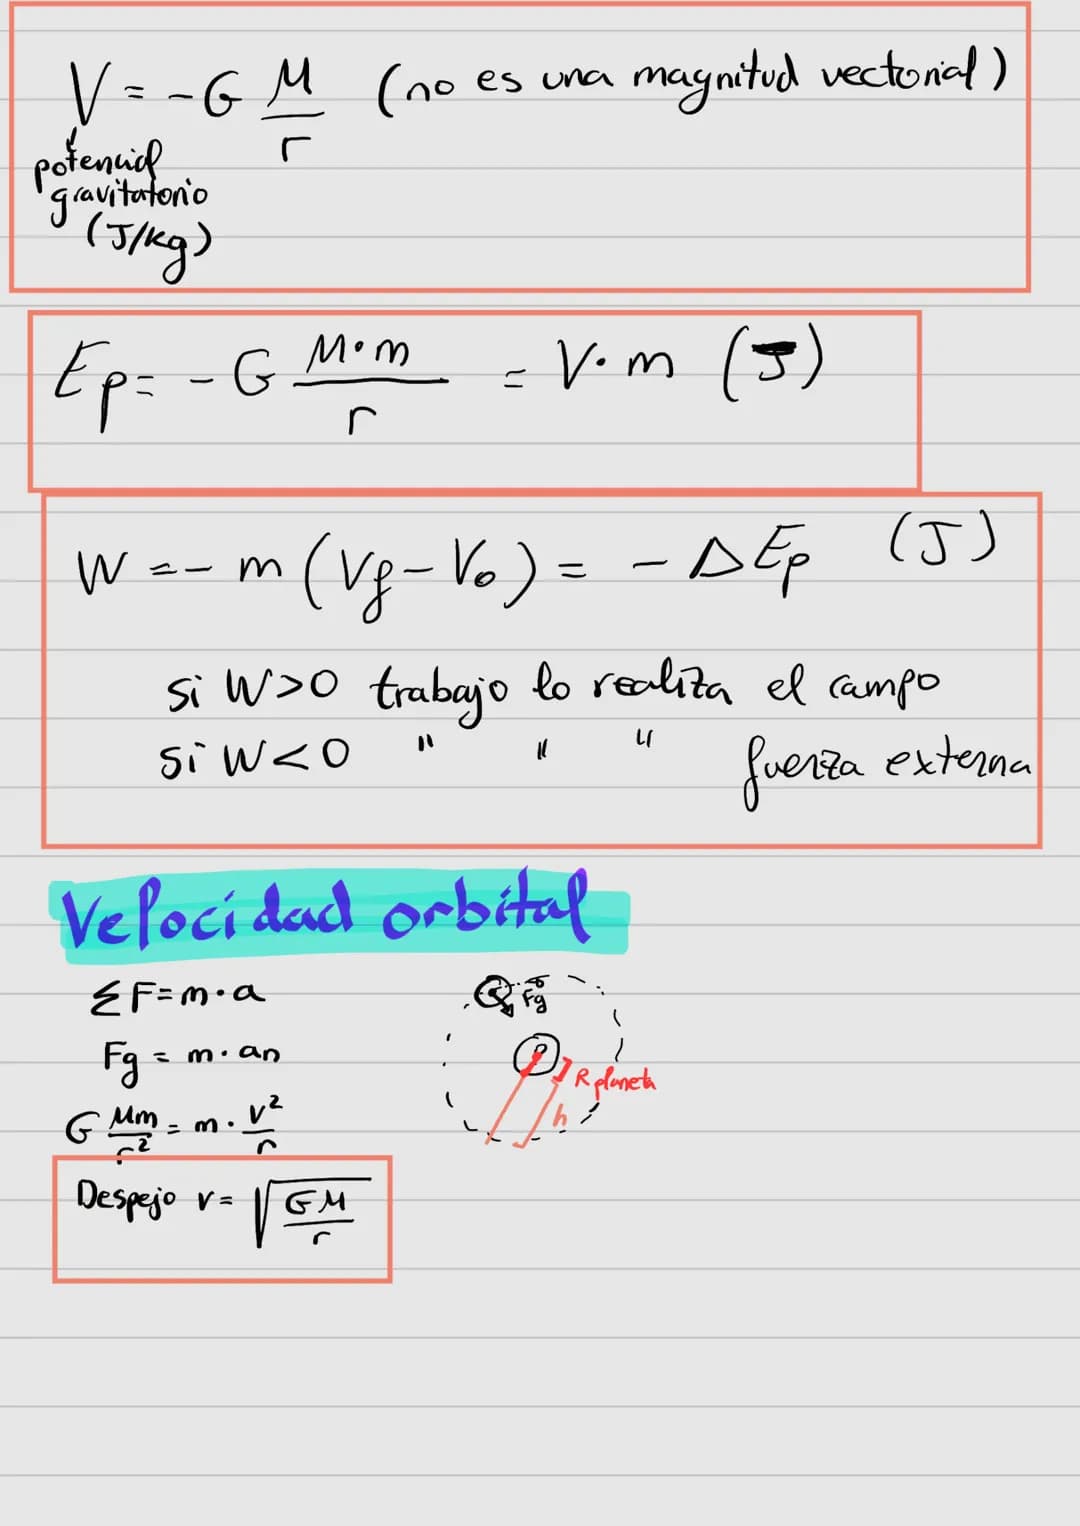 V = -G M/r (no es una magnitud vectorial)
potencial
gravitatorio
(J/kg)
Ep = -G M·m/r = V·m (J)
W = - m (Vf - Vo) = - ΔEp (J)
si W>0 trabajo lo realiza el campo
si W<0 " " " fuerza externa
Velocidad orbital
ΣF = m·a
Fg = m·an
G Mm/r² = m · v²/r
Despejo v = √(GM/r)
Fg
R planeta
h